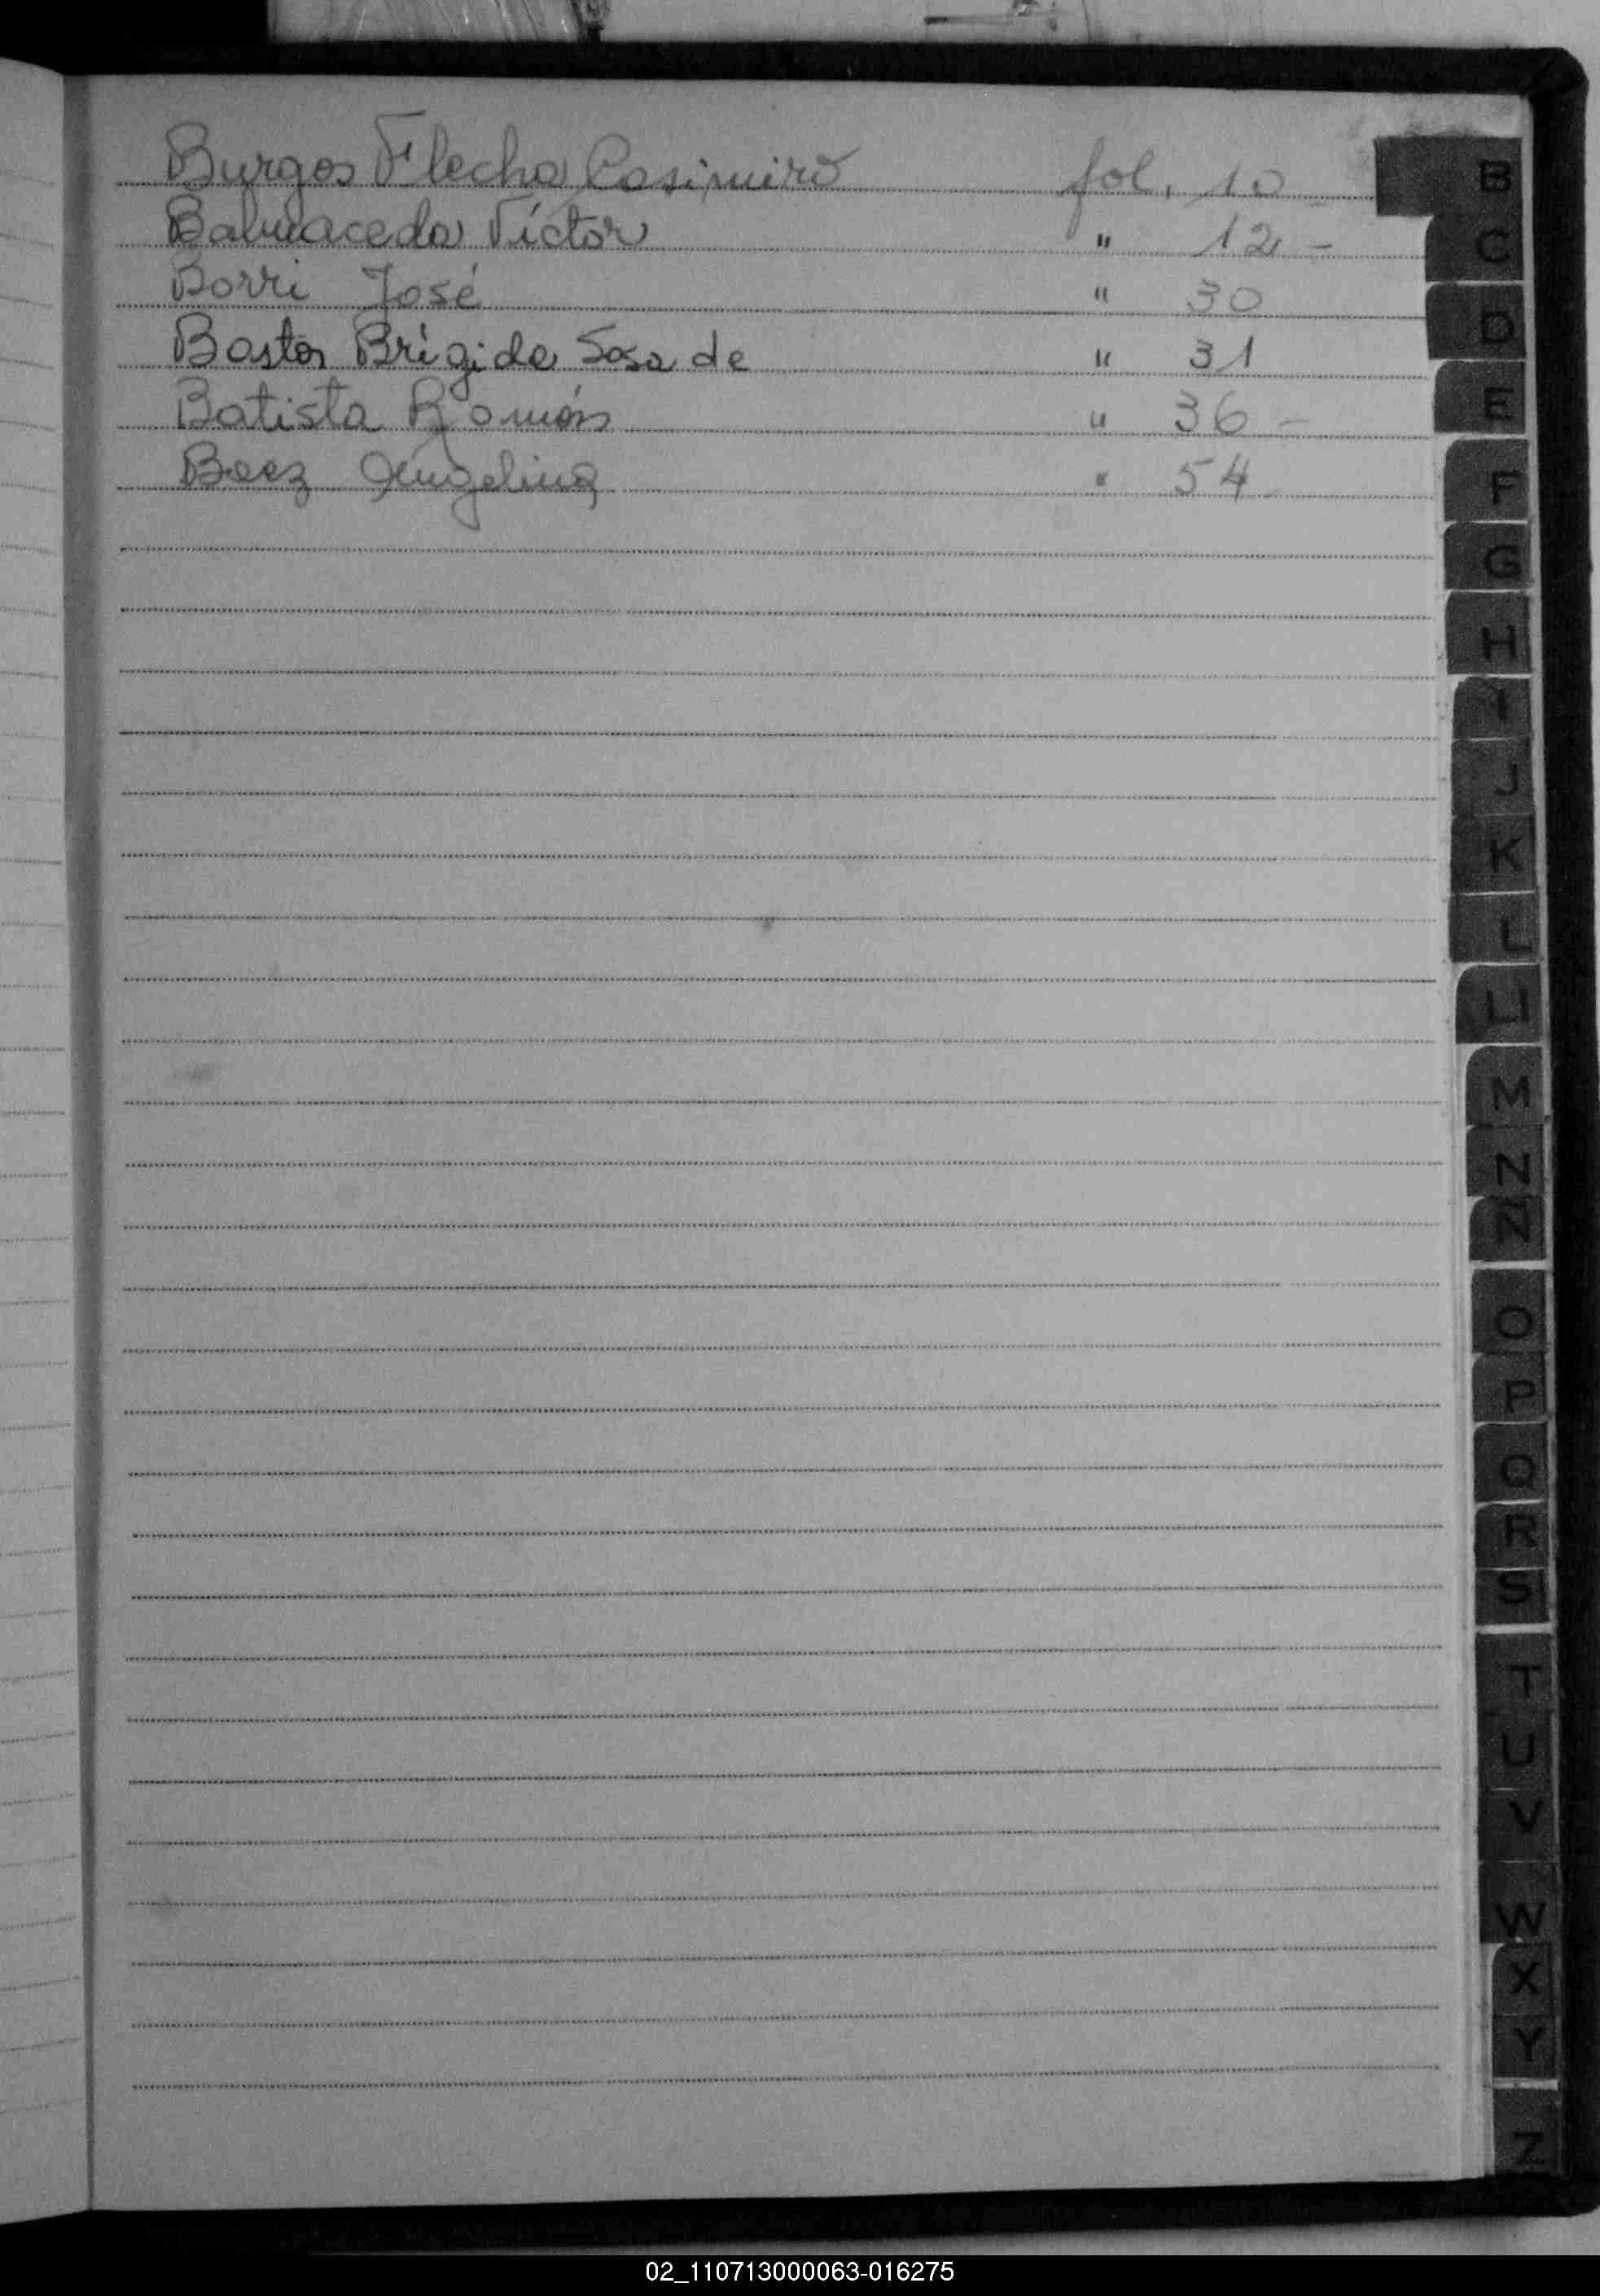 Burgos Flecha Casimiro fol. 10
Balmaceda Víctor " 12 -
Borri José " 30
Bastos Brígida Sosa de " 31
Batista Ramón " 36 -
Baez Angelina " 54
B
C
D
E
F
G
H
I
J
K
L
Ll
M
N
Ñ
O
P
Q
R
S
T
U
V
W
X
Y
Z
02_110713000063-016275